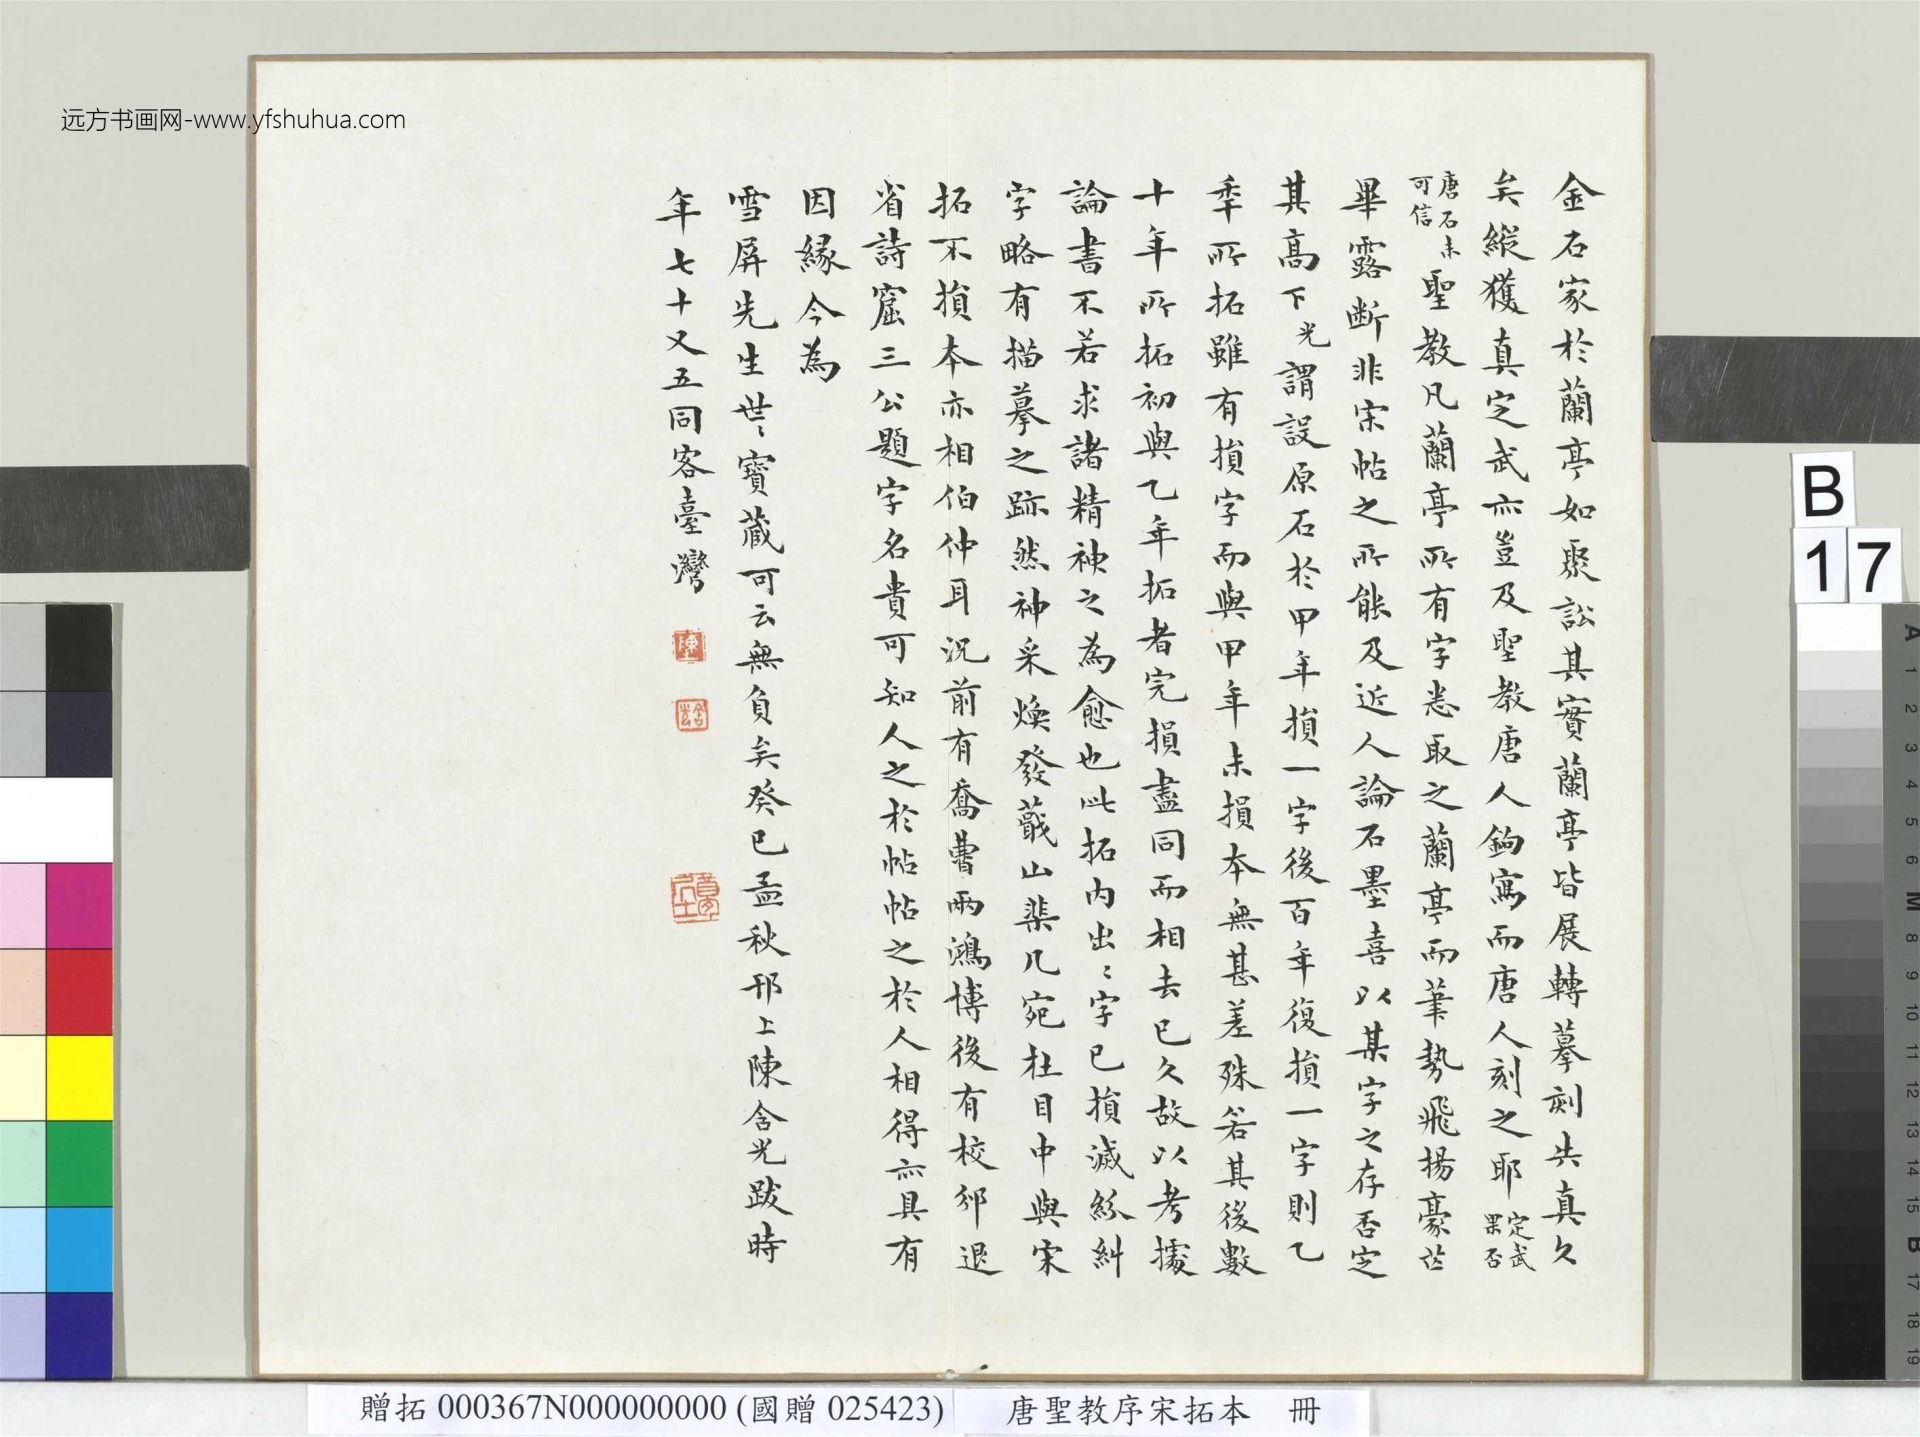 远方书画网-www.yfshuhua.com
金石家於蘭亭如聚訟其實蘭亭皆展轉摹刻失真久
矣縱獲真定武亦豈及聖教唐人鉤寫而唐人刻之耶定武果否
唐石未可信聖教凡蘭亭所有字悉取之蘭亭而筆勢飛揚豪芒
畢露斷非宋帖之所能及近人論石墨喜以某字之存否定
其高下光謂設原石於甲年損一字後百年復損一字則乙
年所拓雖有損字而與甲年未損本無甚差殊若其後數
十年所拓初與乙年拓者完損盡同而相去已久故以考據
論書不若求諸精神之為愈也此拓內出〻字已損滅紛糾
字略有描摹之跡然神采煥發蕺山棐几宛在目中與宋
拓不損本亦相伯仲耳況前有喬曹兩鴻博後有校邠退
省詩窟三公題字名貴可知人之於帖帖之於人相得亦具有
因緣今為
雪屏先生世〻寶藏可云無負矣癸巳孟秋邗上陳含光跋時
年七十又五同客臺灣
陳
含光
B
17
贈拓 000367N000000000 (國贈 025423) 唐聖教序宋拓本 冊